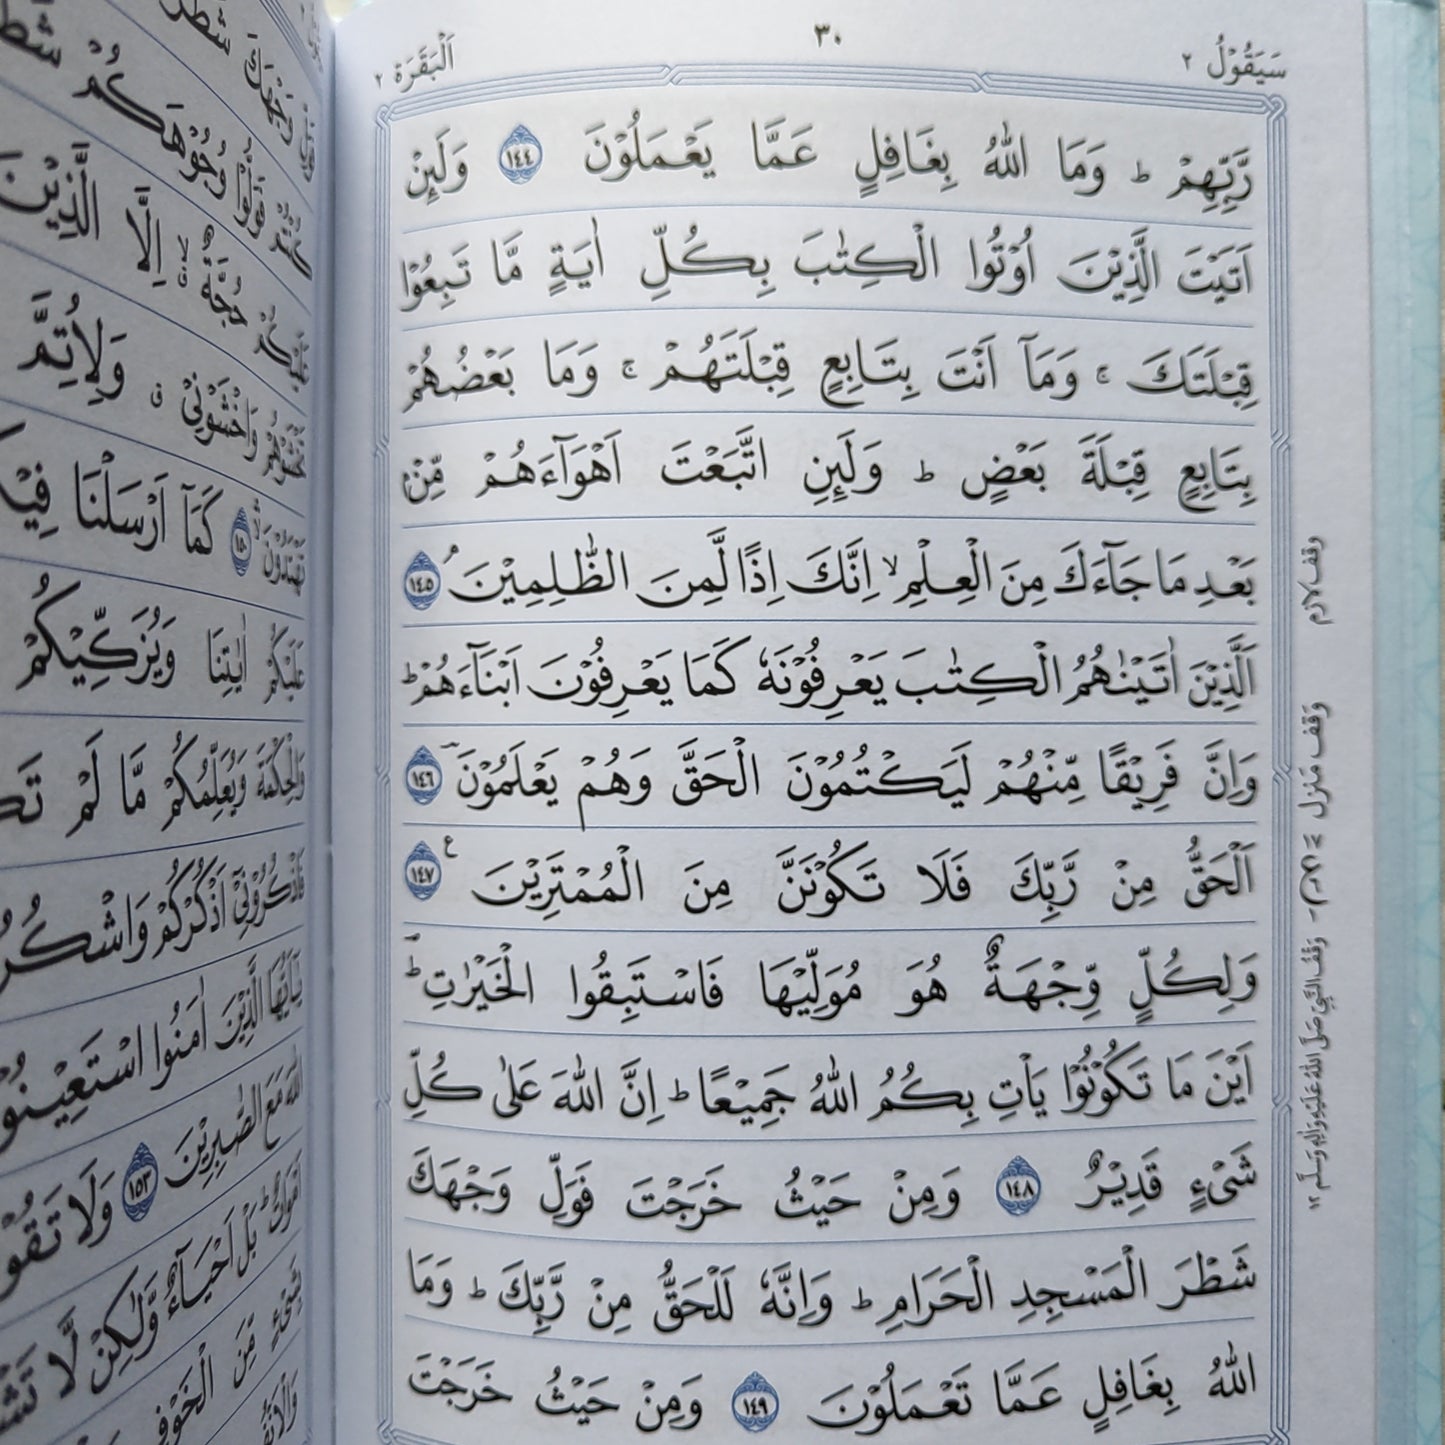 سَيَقُوْلُ ٢
٣٠
اَلْبَقَرَة ٢
رَّبِّهِمْ ؕ وَمَا اللّٰهُ بِغَافِلٍ عَمَّا يَعْمَلُوْنَ ١٤٤ وَلَىِٕنْ
اَتَيْتَ الَّذِيْنَ اُوْتُوا الْكِتٰبَ بِكُلِّ اٰيَةٍ مَّا تَبِعُوْا
قِبْلَتَكَ ۚ وَمَاۤ اَنْتَ بِتَابِعٍ قِبْلَتَهُمْ ۚ وَمَا بَعْضُهُمْ
بِتَابِعٍ قِبْلَةَ بَعْضٍ ؕ وَلَىِٕنِ اتَّبَعْتَ اَهْوَآءَهُمْ مِّنْۢ
بَعْدِ مَا جَآءَكَ مِنَ الْعِلْمِ ۙ اِنَّكَ اِذًا لَّمِنَ الظّٰلِمِيْنَ ۘ ١٤٥
اَلَّذِيْنَ اٰتَيْنٰهُمُ الْكِتٰبَ يَعْرِفُوْنَهٗ كَمَا يَعْرِفُوْنَ اَبْنَآءَهُمْ ؕ
وَاِنَّ فَرِيْقًا مِّنْهُمْ لَيَكْتُمُوْنَ الْحَقَّ وَهُمْ يَعْلَمُوْنَ ؔ ١٤٦
اَلْحَقُّ مِنْ رَّبِّكَ فَلَا تَكُوْنَنَّ مِنَ الْمُمْتَرِيْنَ ١٤٧ ع
وَلِكُلٍّ وِّجْهَةٌ هُوَ مُوَلِّيْهَا فَاسْتَبِقُوا الْخَيْرٰتِ ؕؔ
اَيْنَ مَا تَكُوْنُوْا يَاْتِ بِكُمُ اللّٰهُ جَمِيْعًا ؕ اِنَّ اللّٰهَ عَلٰى كُلِّ
شَىْءٍ قَدِيْرٌ ١٤٨ وَمِنْ حَيْثُ خَرَجْتَ فَوَلِّ وَجْهَكَ
شَطْرَ الْمَسْجِدِ الْحَرَامِ ؕ وَاِنَّهٗ لَلْحَقُّ مِنْ رَّبِّكَ ؕ وَمَا
اللّٰهُ بِغَافِلٍ عَمَّا تَعْمَلُوْنَ ١٤٩ وَمِنْ حَيْثُ خَرَجْتَ
وقف لازم
وَقف مَنزل
وَقْفُ النَّبِىِّ صَلَّى اللّٰهُ عَلَيْهِ وَاٰلِهٖ وَسَلَّمَ ١٢
وَجْهَكَ شَطْرَ
كُنْتُمْ فَوَلُّوْا وُجُوْهَكُمْ شَطْرَ
عَلَيْكُمْ حُجَّةٌ ۙ اِلَّا الَّذِيْنَ
تَخْشَوْهُمْ وَاخْشَوْنِىْ ۗ وَلِاُتِمَّ
تَهْتَدُوْنَ ۙ ١٥٠ كَمَاۤ اَرْسَلْنَا
عَلَيْكُمْ اٰيٰتِنَا وَيُزَكِّيْكُمْ
وَالْحِكْمَةَ وَيُعَلِّمُكُمْ مَّا لَمْ
فَاذْكُرُوْنِىْۤ اَذْكُرْكُمْ
يٰۤاَيُّهَا الَّذِيْنَ اٰمَنُوا
اللّٰهَ مَعَ الصّٰبِرِيْنَ ١٥٣ وَلَا
اَمْوَاتٌ ؕ بَلْ اَحْيَآءٌ وَّلٰكِنْ لَّا
بِشَىْءٍ مِّنَ الْخَوْفِ